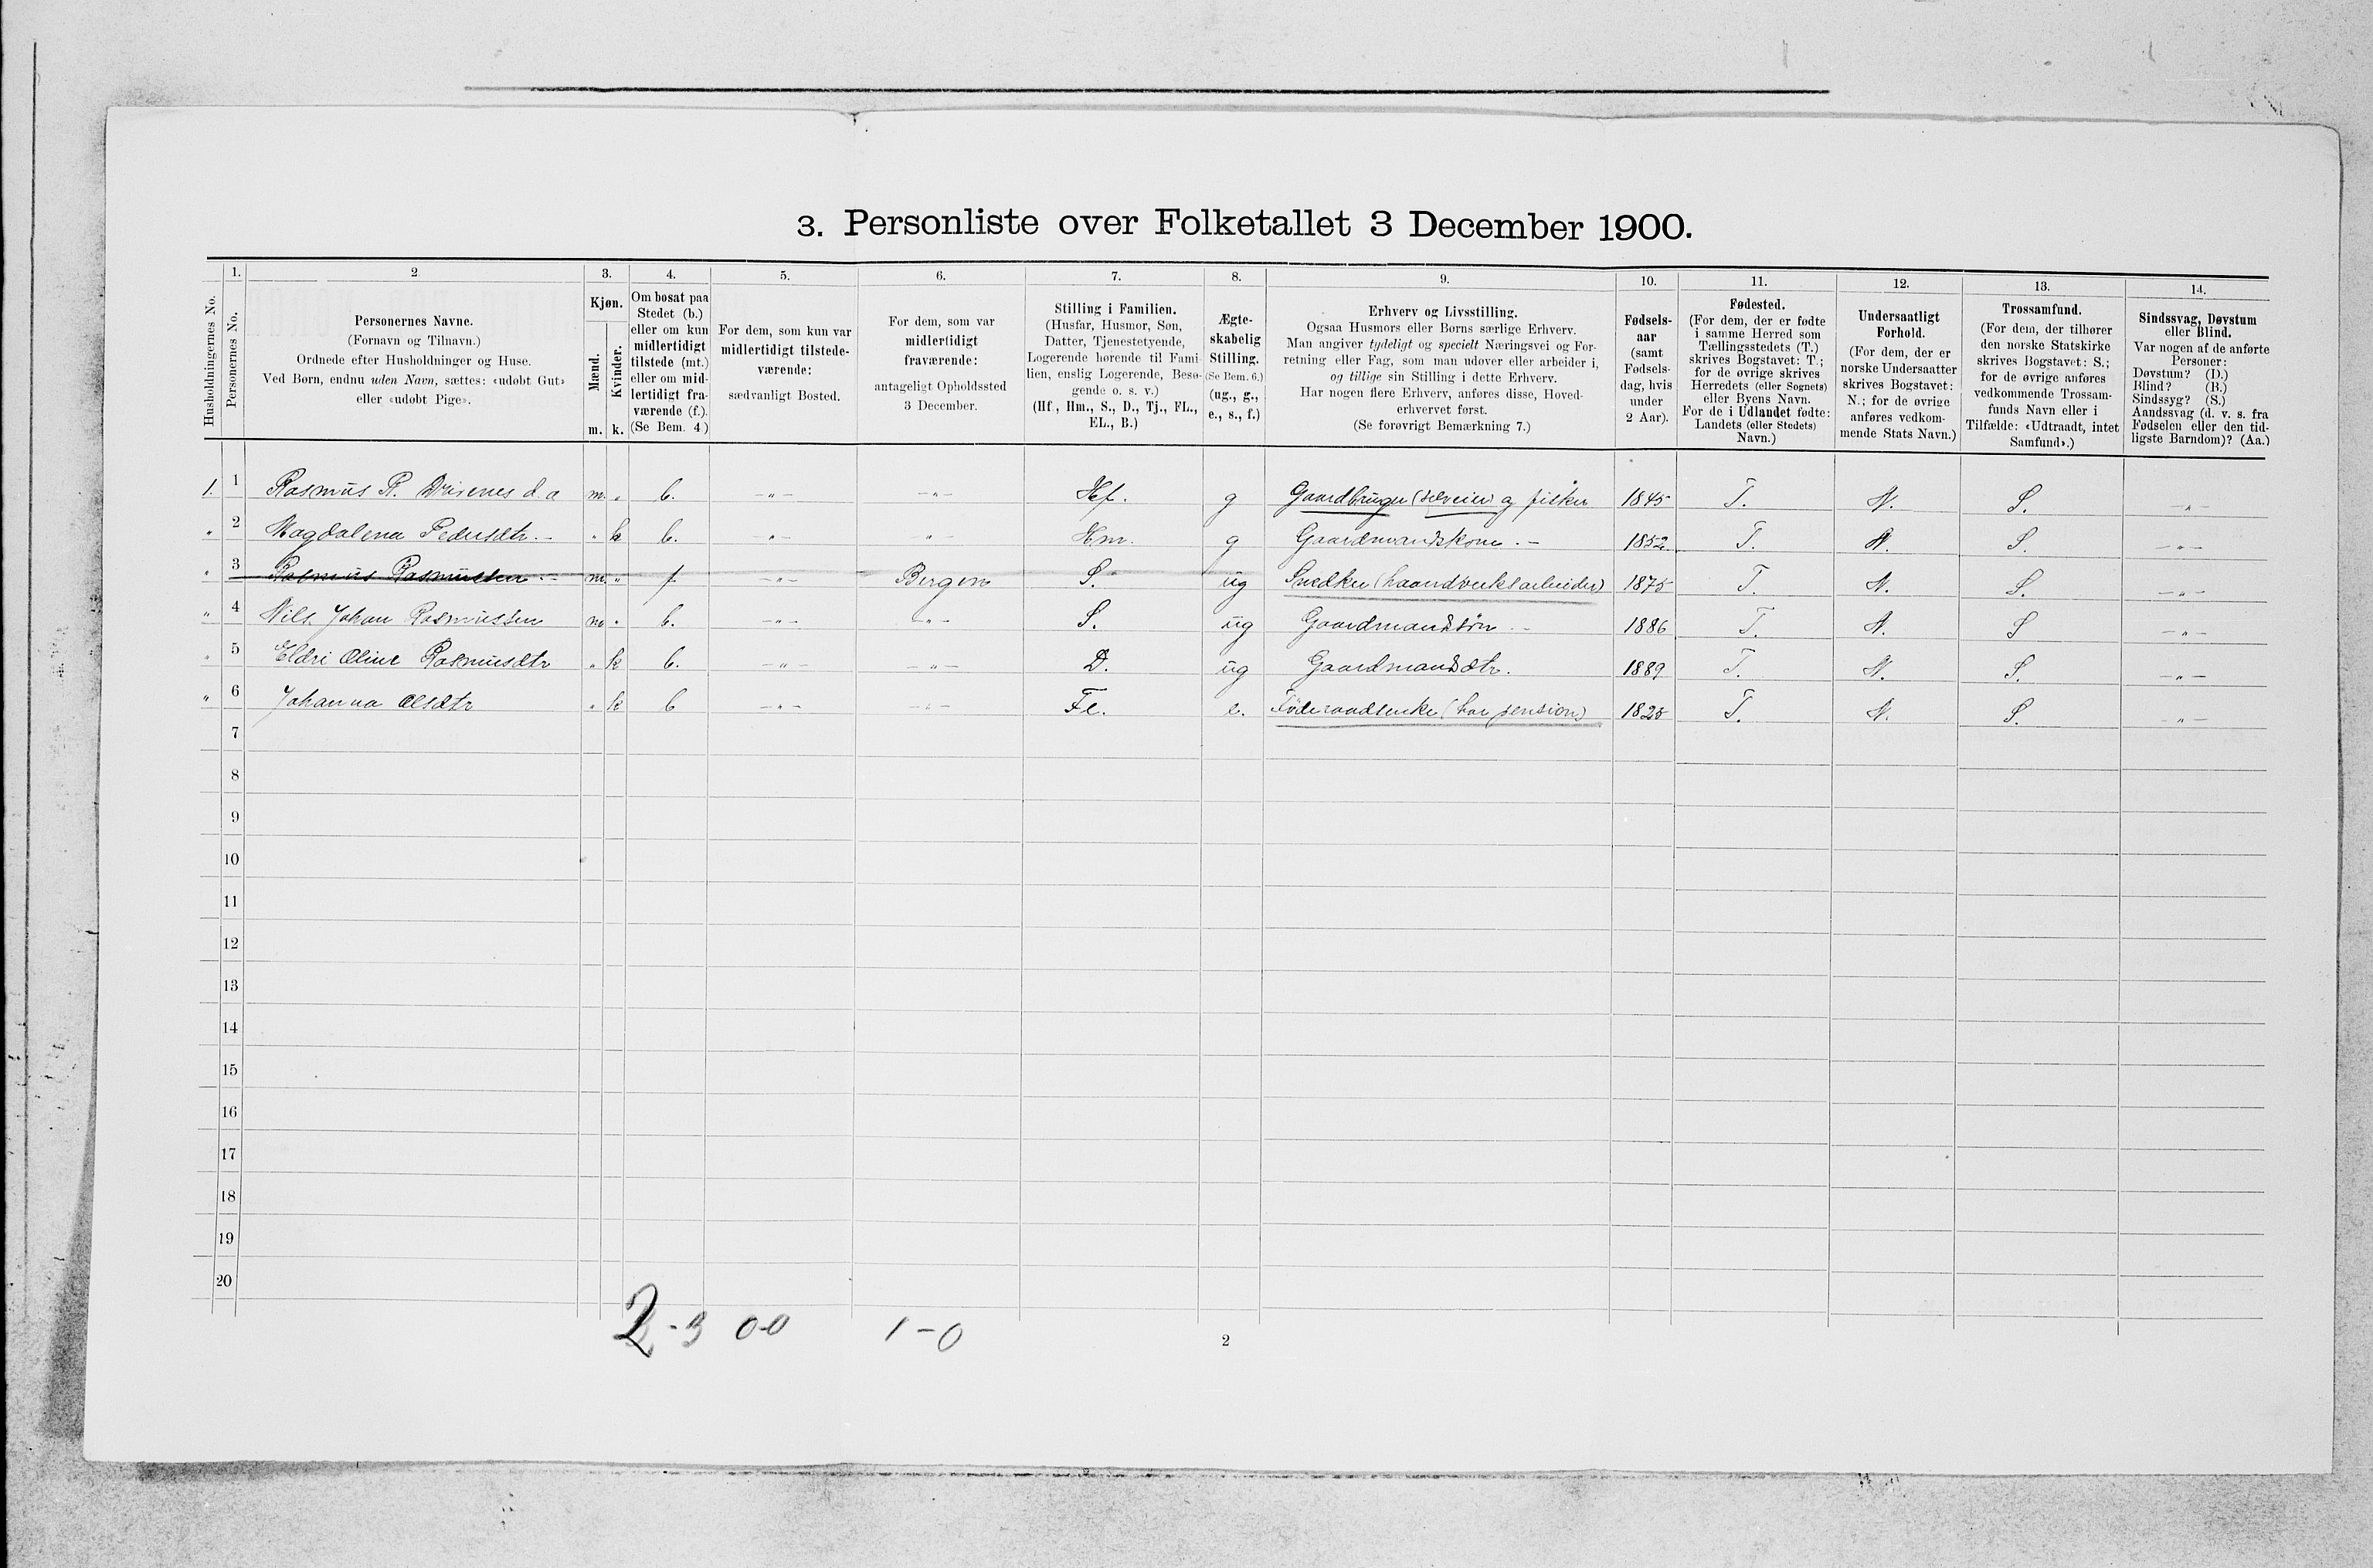 3. Personliste over Folketallet 3 December 1900.
Husholdningernes No.
1.
Personernes No.
2
Personernes Navne.
(Fornavn og Tilnavn.)
Ordnede efter Husholdninger og Huse.
Ved Børn, endnu uden Navn, sættes: «udøbt Gut»
eller «udøbt Pige».
3.
Kjøn.
Mænd.
Kvinder.
m. k.
4.
Om bosat paa
Stedet (b.)
eller om kun
midlertidigt
tilstede (mt.)
eller om mid-
lertidigt fra-
værende (f.).
(Se Bem. 4.)
5.
For dem, som kun var
midlertidigt tilstede-
værende:
sædvanligt Bosted.
6.
For dem, som var
midlertidigt
fraværende:
antageligt Opholdssted
3 December.
7.
Stilling i Familien.
(Husfar, Husmor, Søn,
Datter, Tjenestetyende,
Logerende hørende til Fami-
lien, enslig Logerende, Besø-
gende o. s. v.)
(Hf., Hm., S., D., Tj., FL.,
EL., B.)
8.
Ægte-
skabelig
Stilling.
(Se Bem. 6.)
(ug., g.,
e., s., f.)
9.
Erhverv og Livsstilling.
Ogsaa Husmors eller Børns særlige Erhverv.
Man angiver tydeligt og specielt Næringsvei og For-
retning eller Fag, som man udøver eller arbeider i,
og tillige sin Stilling i dette Erhverv.
Har nogen flere Erhverv, anføres disse, Hoved-
erhvervet først.
(Se forøvrigt Bemærkning 7.)
10.
Fødsels-
aar
(samt
Fødsels-
dag, hvis
under
2 Aar).
11.
Fødested.
(For dem, der er fødte
i samme Herred som
Tællingsstedets (T.)
skrives Bogstavet: T.;
for de øvrige skrives
Herredets (eller Sognets)
eller Byens Navn.
For de i Udlandet fødte:
Landets (eller Stedets)
Navn.)
12.
Undersaatligt
Forhold.
(For dem, der er
norske Undersaatter
skrives Bogstavet:
N.; for de øvrige
anføres vedkom-
mende Stats Navn.)
13.
Trossamfund.
(For dem, der tilhører
den norske Statskirke
skrives Bogstavet: S.;
for de øvrige anføres
vedkommende Trossam-
funds Navn eller i
Tilfælde: «Udtraadt, intet
Samfund».)
14.
Sindssvag, Døvstum
eller Blind.
Var nogen af de anførte
Personer:
Døvstum? (D.)
Blind? (B.)
Sindssyg? (S.)
Aandssvag (d. v. s. fra
Fødselen eller den tid-
ligste Barndom)? (Aa.)
1. 1 Rasmus R. d. a m. " b. -"- -"- Hf. g Gaardbruger (selveier) og fisker 1845 T. N. S. -"-
" 2 Magdalena Pedersdtr. - " k b. -"- -"- Hm. g Gaardmandskone. - 1852 T. N. S. -"-
" 3 Rasmus Rasmussen - m. " f -"- Bergen S. ug Snedker (haandverksarbeider) 1875 T. N. S. -"-
" 4 Nils Johan Rasmussen m " b. -"- -"- S. ug Gaardmandssøn - 1886 T. N. S -"-
" 5 Eldri Oline Rasmusdtr " k b. -"- -"- D. ug Gaardmandsdtr. 1889 T. N. S. -"-
" 6 Johanna Olsdtr " k b -"- -"- Fl. e. Föderaadsenke (har pension) 1825 T. N. S. -"-
7
8
9
10
11
12
13
14
15
16
17
18
19
20
2-3 0-0 1-0
2